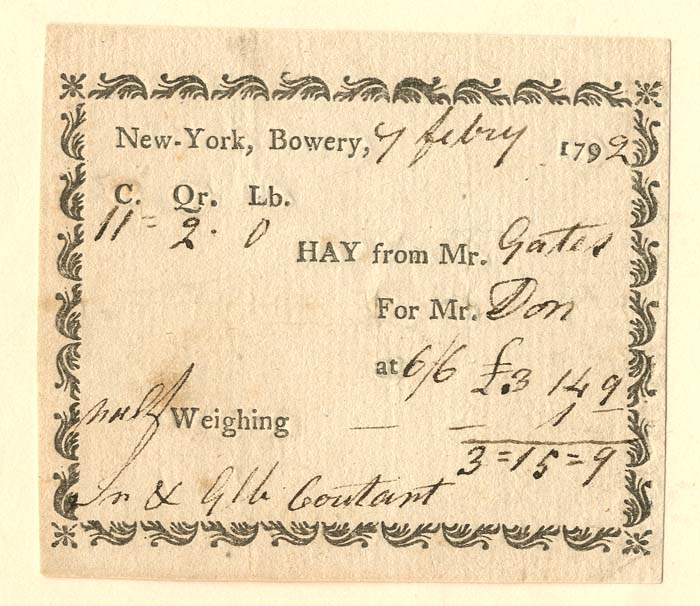 New-York, Bowery, 7 febry 1792
C. Qr. Lb.
11 = 2 . 0
HAY from Mr. Gates
For Mr. Don
at 6/6 £3 14 9
half Weighing — — 1 —
3 = 15 = 9
Jn & Coutant